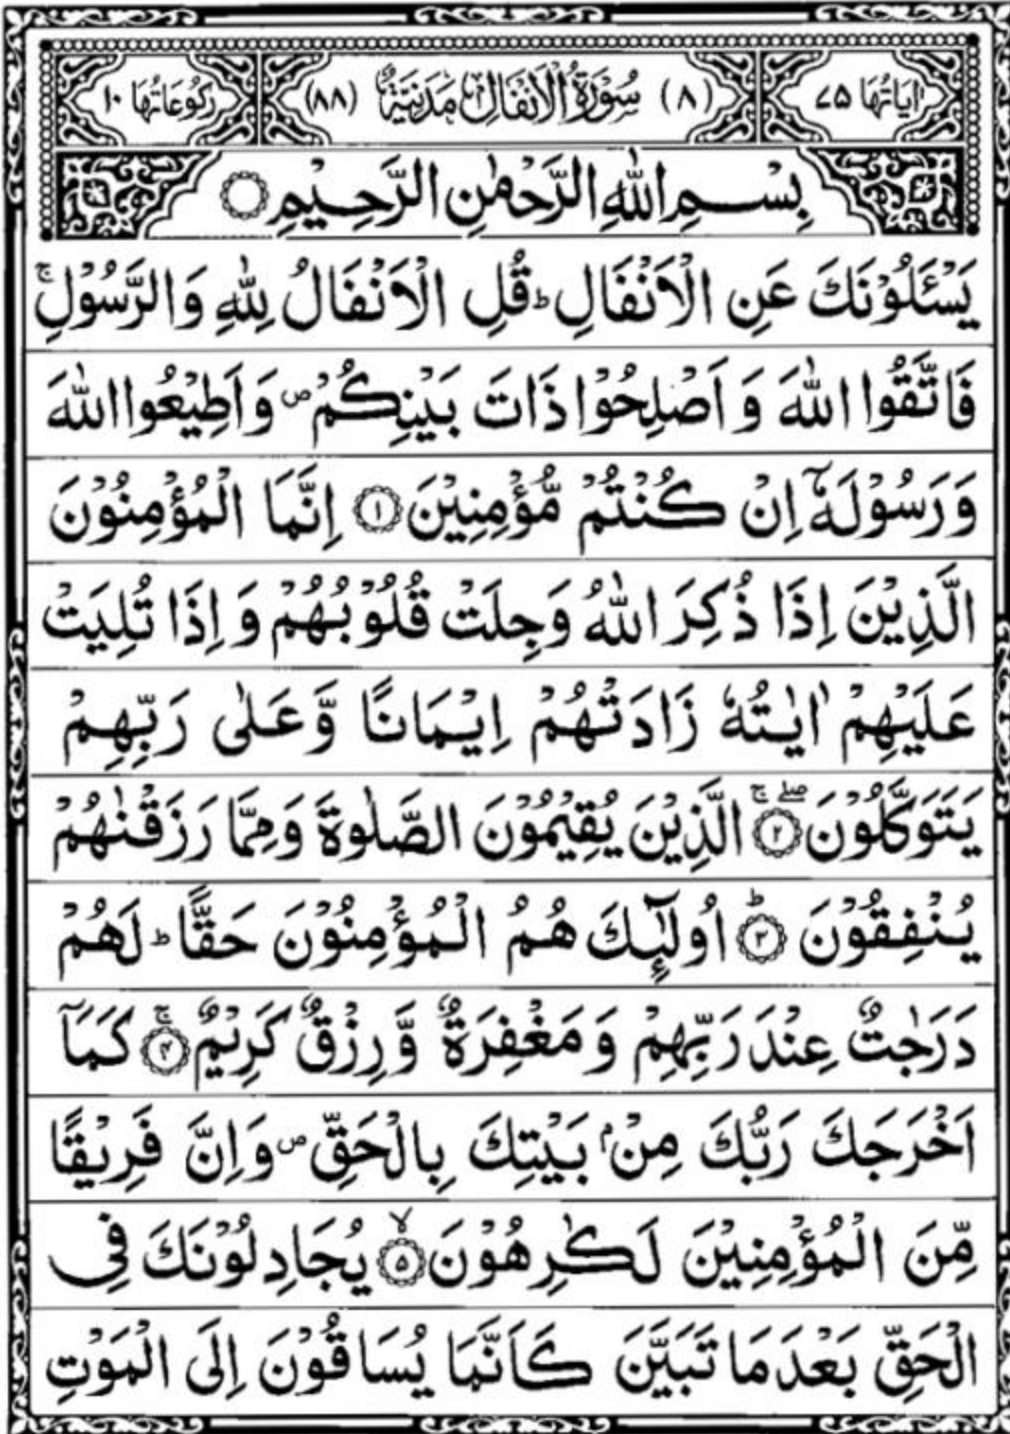 اٰیَاتُهَا ۷۵ (۸) سُوْرَةُ الْاَنْفَالِ مَدَنِيَّةٌ (۸۸) رُكُوْعَاتُهَا ۱۰
بِسْمِ اللّٰهِ الرَّحْمٰنِ الرَّحِيْمِ ۝
يَسْـَٔلُوْنَكَ عَنِ الْاَنْفَالِ ؕ قُلِ الْاَنْفَالُ لِلّٰهِ وَالرَّسُوْلِ ۚ
فَاتَّقُوا اللّٰهَ وَ اَصْلِحُوْا ذَاتَ بَيْنِكُمْ ۪ وَ اَطِيْعُوا اللّٰهَ
وَ رَسُوْلَهٗۤ اِنْ كُنْتُمْ مُّؤْمِنِيْنَ ۝۱ اِنَّمَا الْمُؤْمِنُوْنَ
الَّذِيْنَ اِذَا ذُكِرَ اللّٰهُ وَجِلَتْ قُلُوْبُهُمْ وَ اِذَا تُلِيَتْ
عَلَيْهِمْ اٰيٰتُهٗ زَادَتْهُمْ اِيْمَانًا وَّ عَلٰى رَبِّهِمْ
يَتَوَكَّلُوْنَ ۝۲ ۖۚ الَّذِيْنَ يُقِيْمُوْنَ الصَّلٰوةَ وَ مِمَّا رَزَقْنٰهُمْ
يُنْفِقُوْنَ ۝۳ ؕ اُولٰٓئِكَ هُمُ الْمُؤْمِنُوْنَ حَقًّا ؕ لَهُمْ
دَرَجٰتٌ عِنْدَ رَبِّهِمْ وَ مَغْفِرَةٌ وَّ رِزْقٌ كَرِيْمٌ ۝۴ ۚ كَمَاۤ
اَخْرَجَكَ رَبُّكَ مِنْۢ بَيْتِكَ بِالْحَقِّ ۪ وَ اِنَّ فَرِيْقًا
مِّنَ الْمُؤْمِنِيْنَ لَكٰرِهُوْنَ ۝۵ ۙ يُجَادِلُوْنَكَ فِى
الْحَقِّ بَعْدَ مَا تَبَيَّنَ كَاَنَّمَا يُسَاقُوْنَ اِلَى الْمَوْتِ